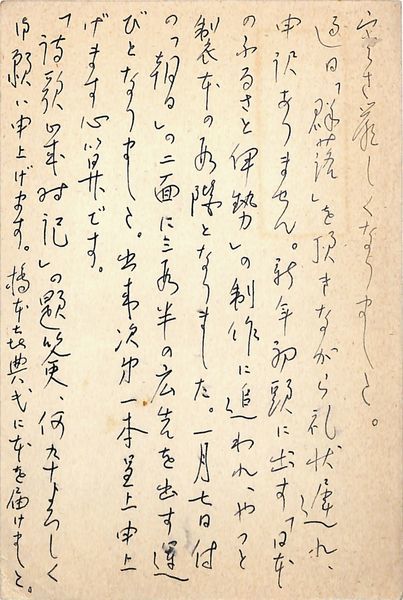 寒さ厳しくなりました。
過日「群落」を頂きながら礼状遅れ、
申訳ありません。新年初頭に出す「日本
のふるさと伊勢」の制作に追われ、やっと
製本の段階となりました。一月七日付
の「朝日」の二面に三段半の広告を出す運
びとなりました。出来次第一本呈上申上
げます心算です。
「詩歌歳時記」の題簽、何卒よろしく
御願い申上げます。橋本喜典氏に本を届けました。